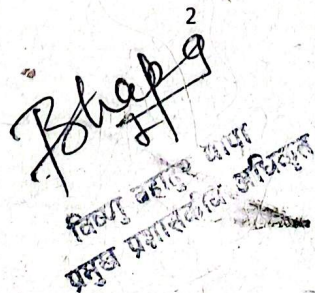 2
विष्णु बहादुर थापा
प्रमुख प्रशासकीय अधिकृत